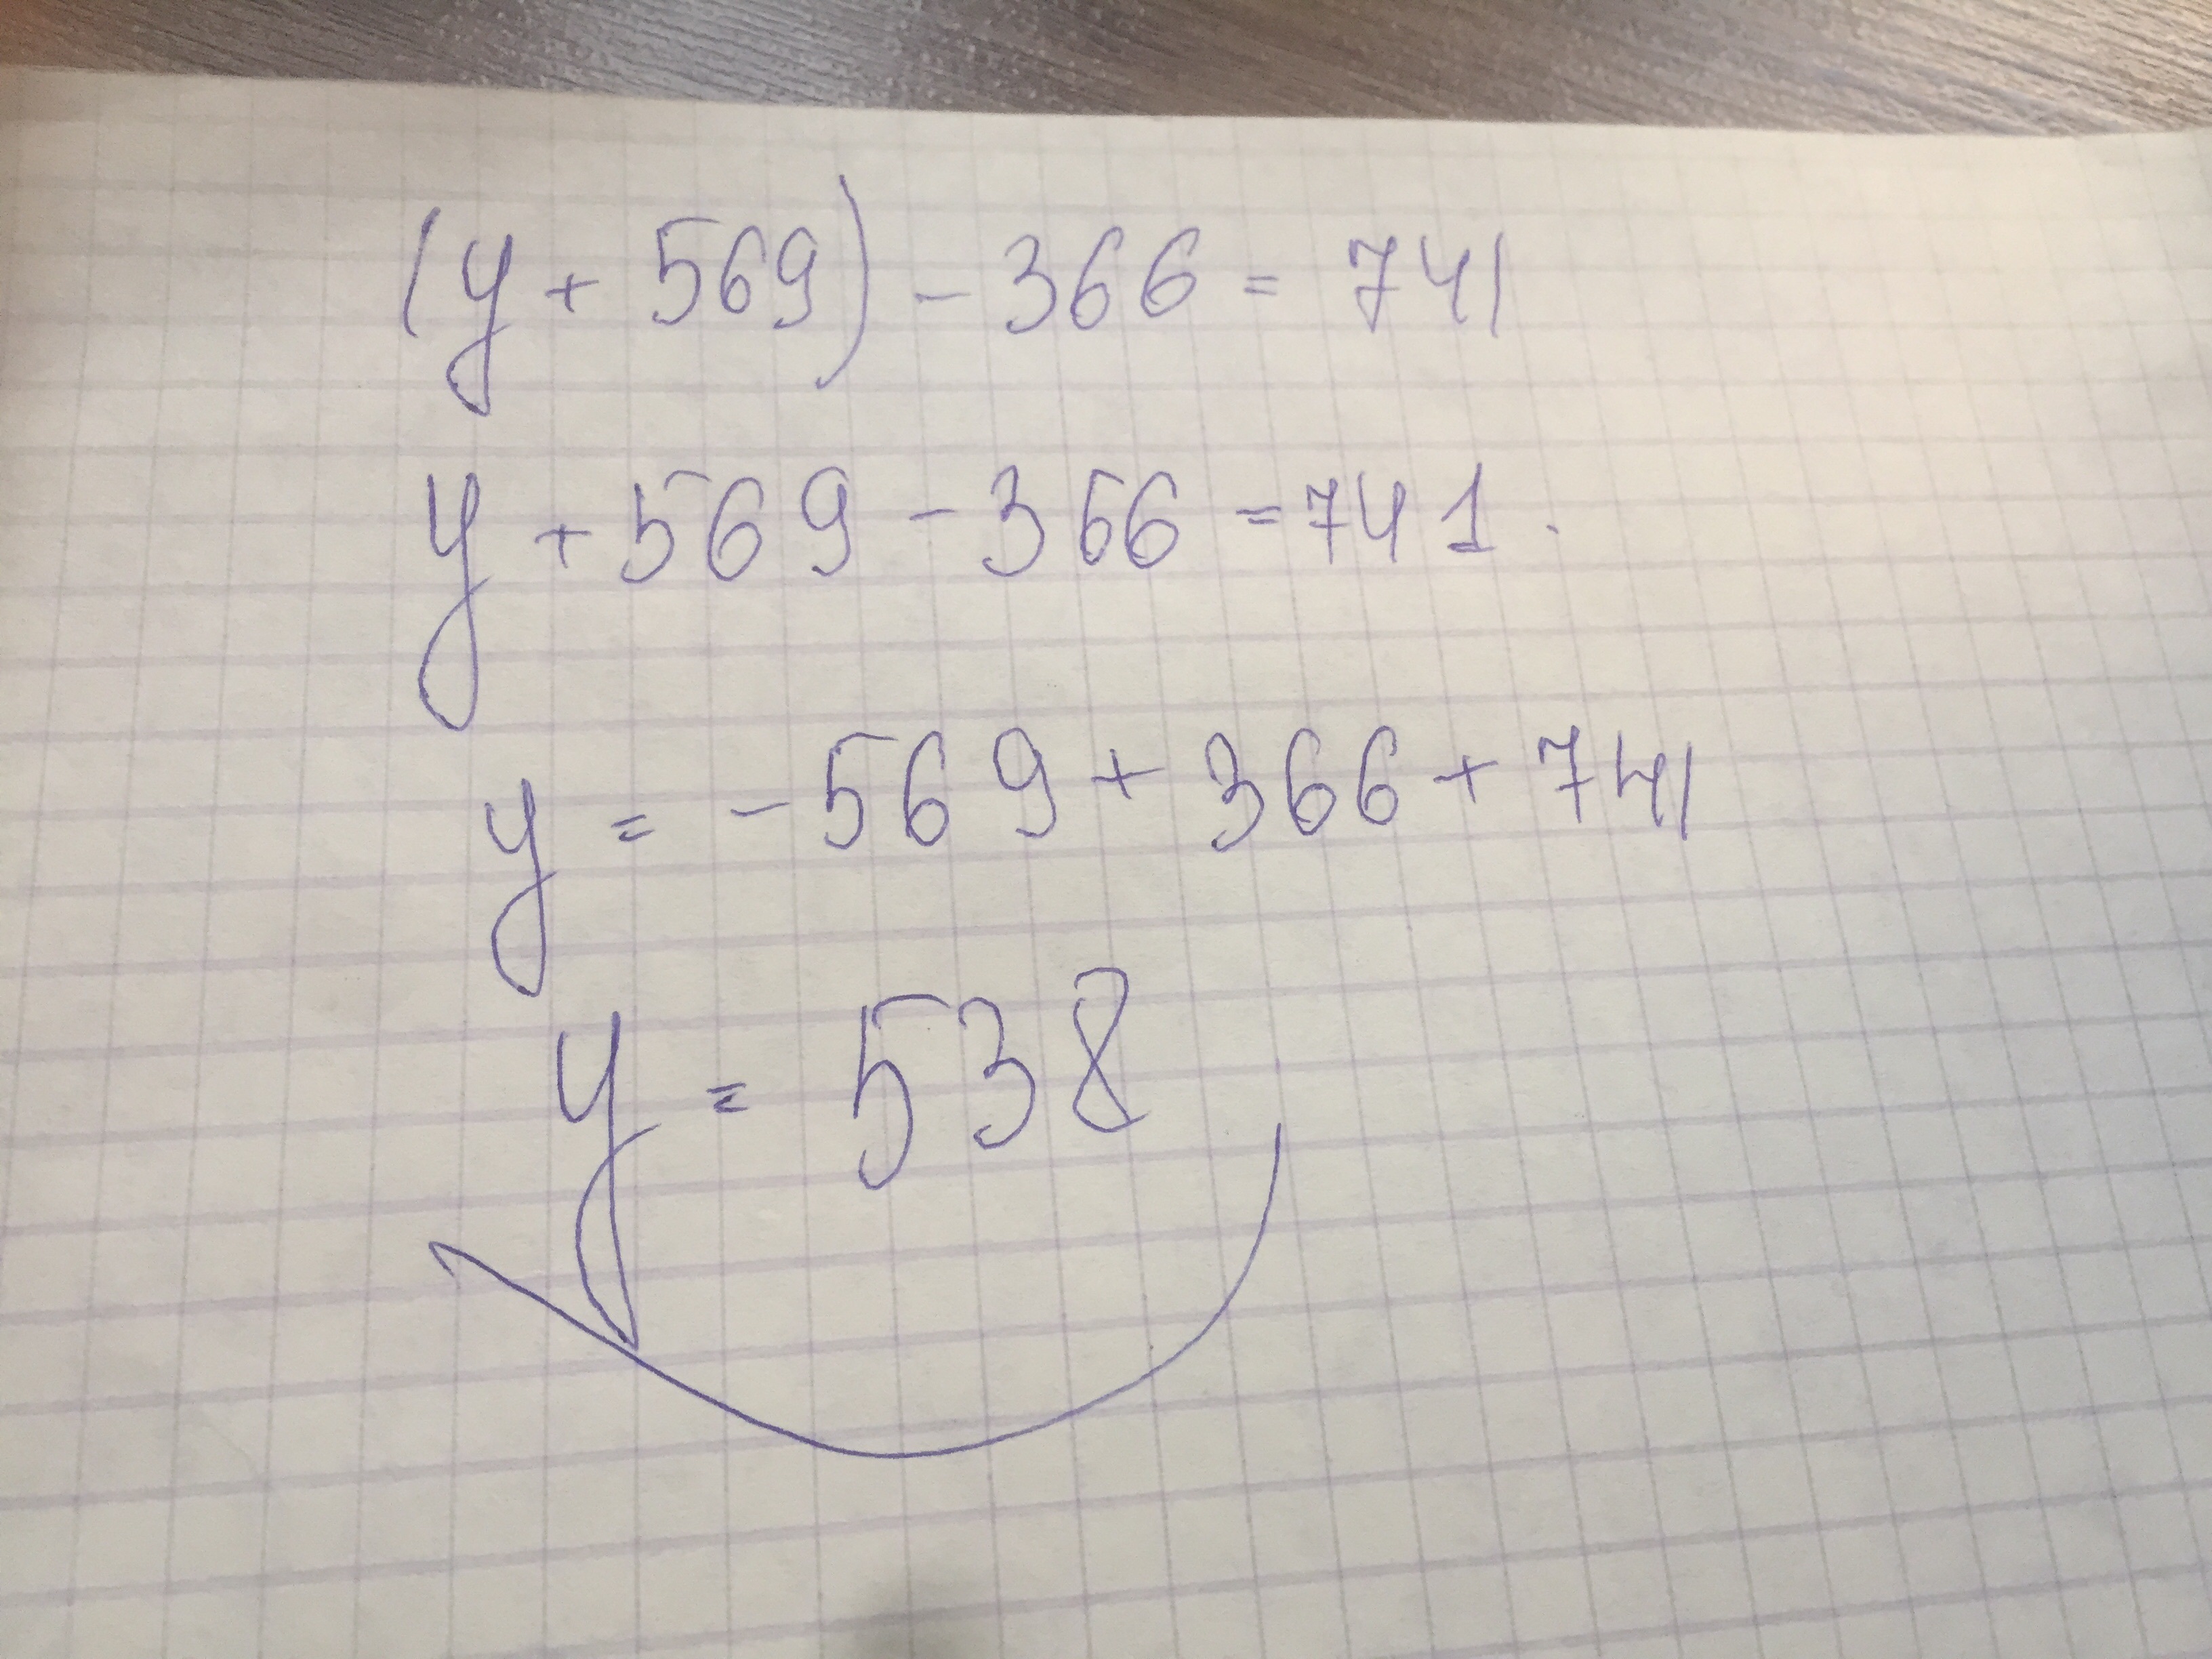 (y + 569) - 366 = 741
y + 569 - 366 = 741.
y = - 569 + 366 + 741
y = 538